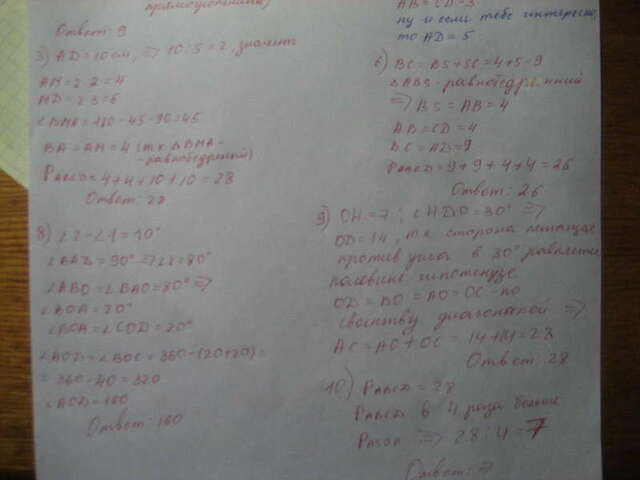 прямоугольника)
Ответ: 9
3) AD = 10 см, => 10:5 = 2, значит
AM = 2·2 = 4
MD = 2·3 = 6
∠BMA = 180 - 45 - 90 = 45
BA = AM = 4 (т.к ΔBMA -
- равнобедренный)
PABCD = 4+4+10+10 = 28
Ответ: 28
8) ∠2 - ∠1 = 10°
∠BAD = 90° => ∠2 = 80°
∠ABO = ∠BAO = 80° =>
∠BOA = 20°
∠BOA = ∠COD = 20°
∠AOD = ∠BOC = 360 - (20+20) =
= 360 - 40 = 320
∠AOD = 160
Ответ: 160
AB = CD = 3
ну и если тебе интересно,
то AD = 5
6) BC = BS + SC = 4+5 = 9
ΔABS - равнобедренный
=> BS = AB = 4
AB = CD = 4
BC = AD = 9
PABCD = 9+9+4+4 = 26
Ответ: 26
9) OH = 7; ∠HDO = 30° =>
OD = 14, т.к сторона лежащая
против угла в 30° равняется
половине гипотенузе
OD = BO = AO = OC - по
свойству диагоналей =>
AC = AO + OC = 14+14 = 28
Ответ: 28
10) PABCD = 28
PABCD в 4 раза больше
=> 28:4 = 7
Ответ: 7